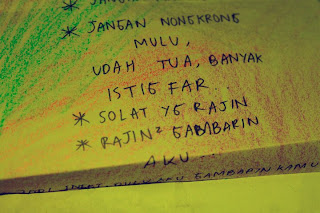 * JANGAN NONGKRONG
MULU,
UDAH TUA, BANYAK
ISTIGFAR
* SOLAT YG RAJIN
* RAJIN² GAMBARIN
AKU
GAMBARIN KAMU